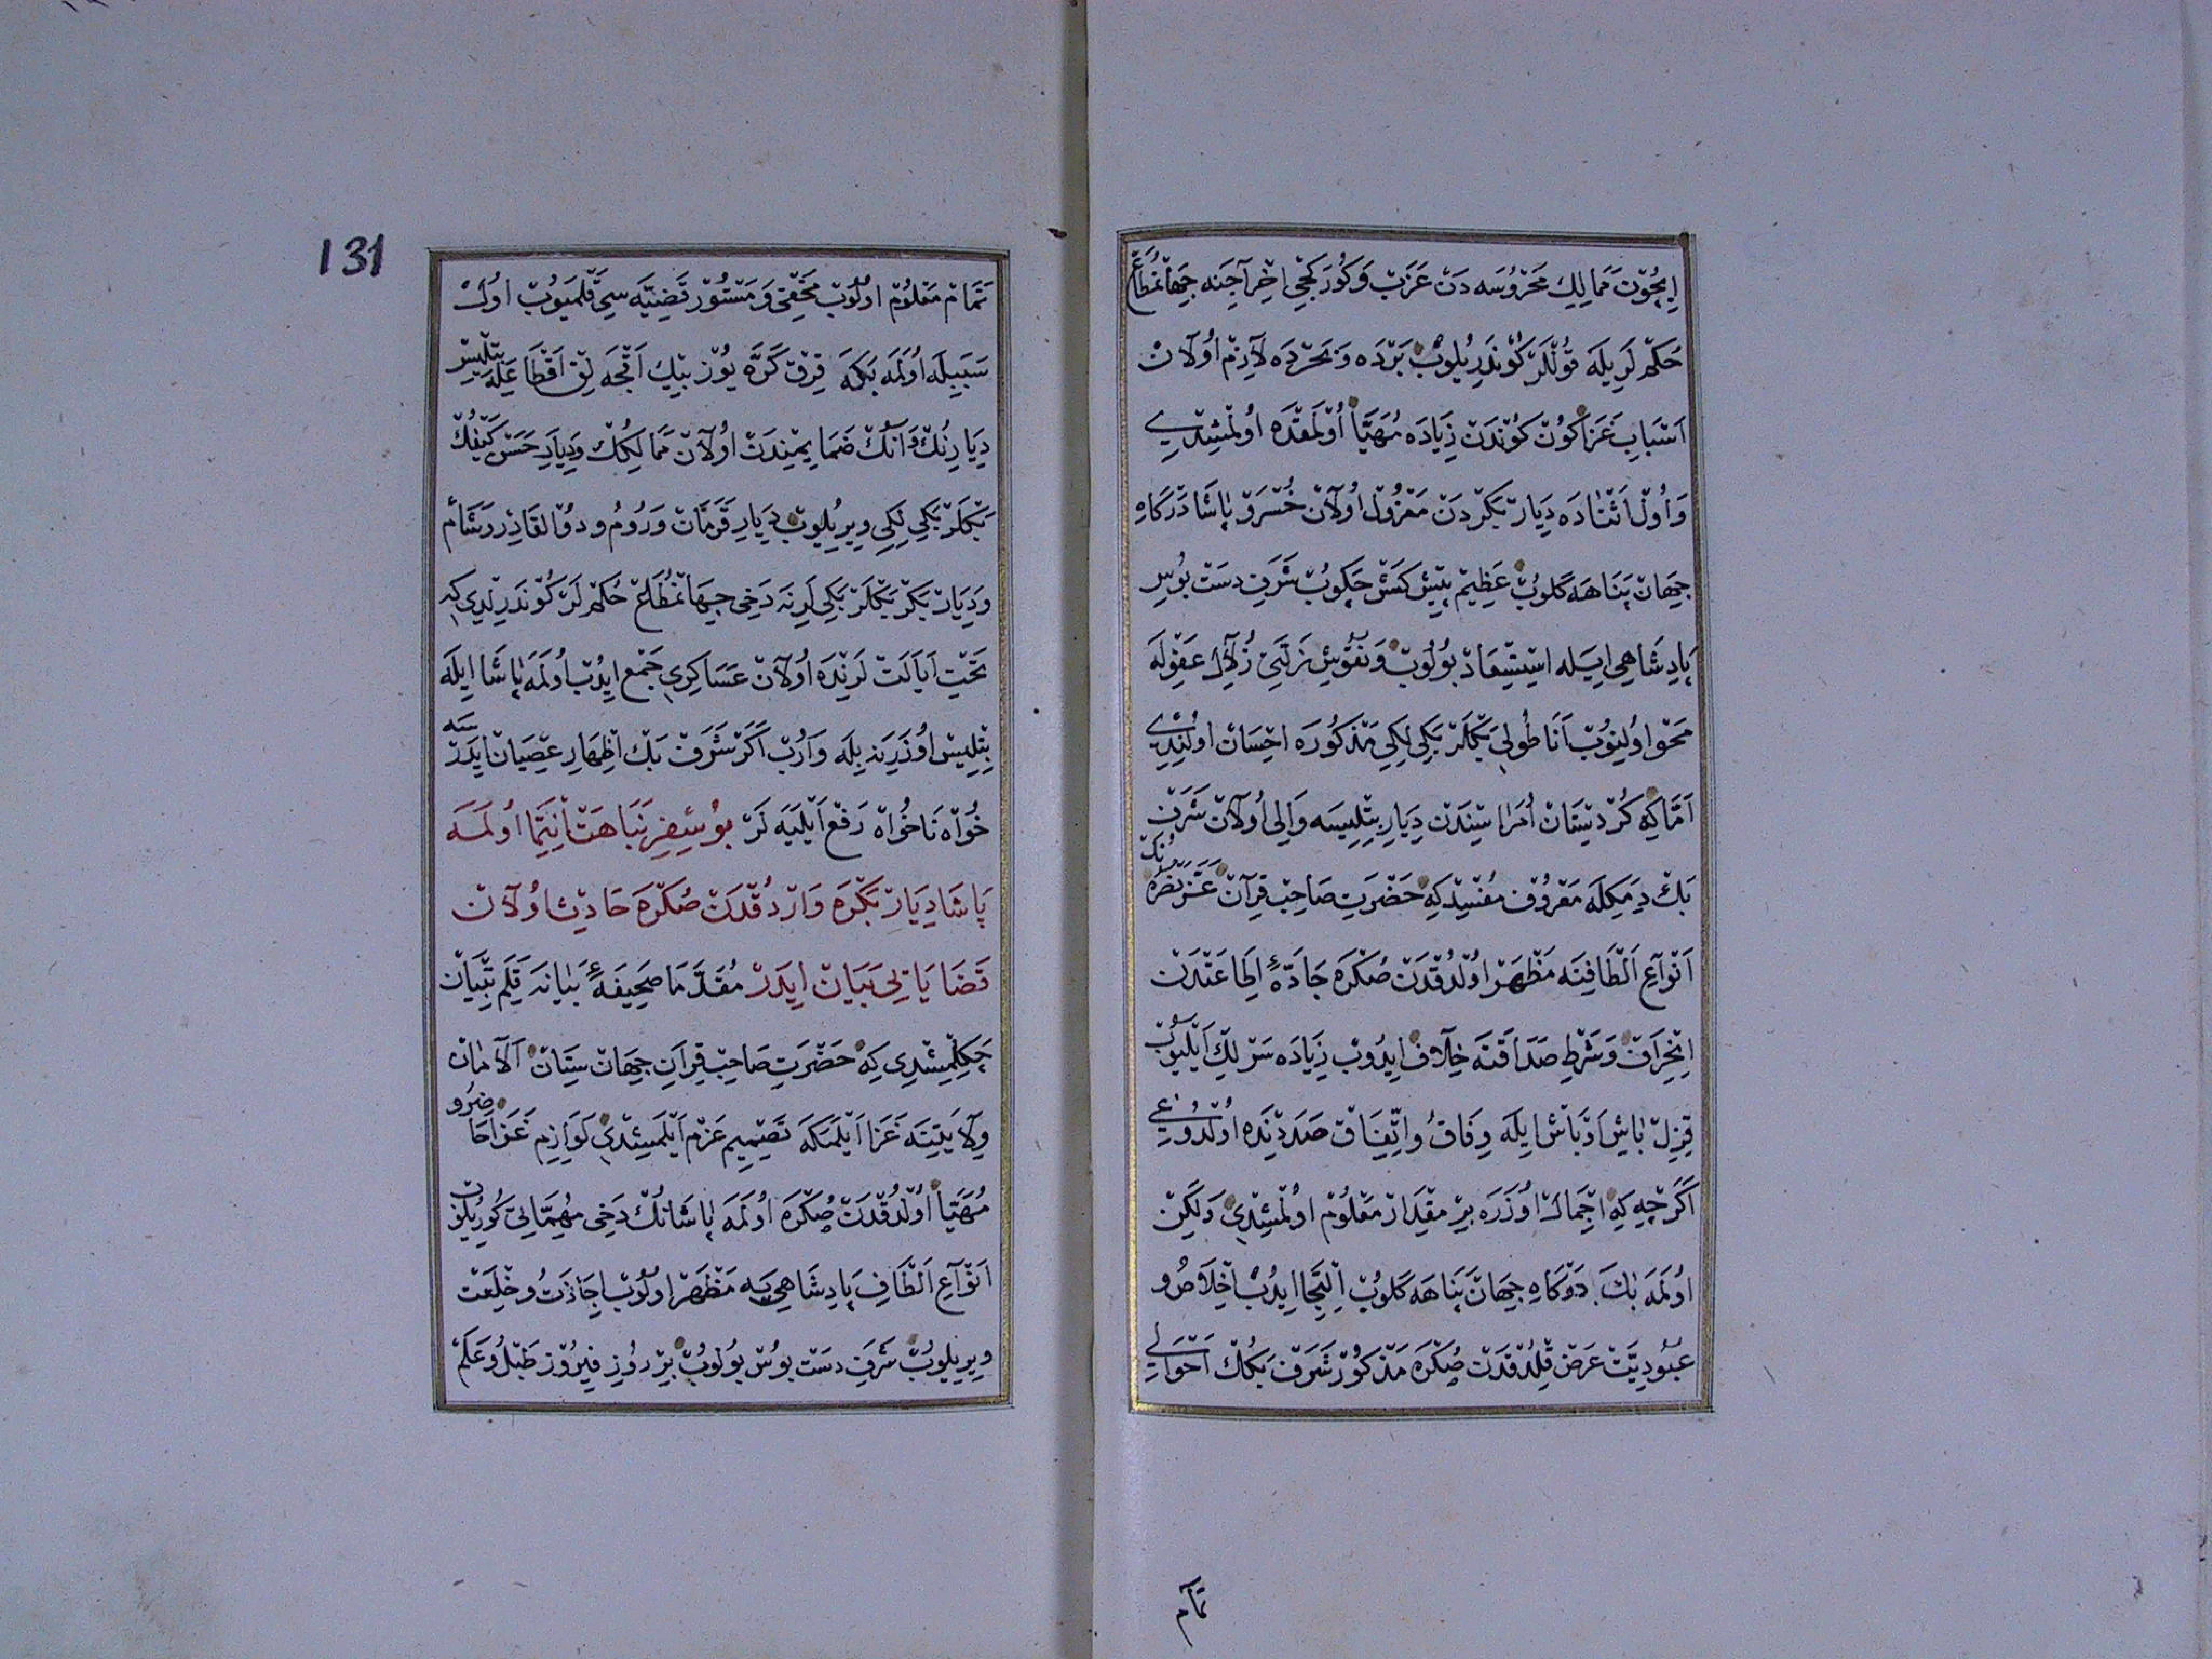 ايچون ممالك محروسه دن عزب و كوركجى اخراجنه جهانمطاع
حكم لريله قوللر كوندريلوب برده و بحرده لازم اولان
اسباب غزا كون كوندن زياده مهيا اولمقده اولمشيدى
و اول اثناده ديار بكردن معزول اولان خسرو پاشا درگاه
جهان پناهه گلوب عظيم پيش كش چكوب شرف دست بوس
پادشاهى ايله استسعاد بولوب و نقوش زلال عفوله
محو اولينوب اناطولى بكلر بكى لكى مذكوره احسان اولندى
اما كه كردستان امراسيندن ديار بتليسه والى اولان شرف
بك ديمكله معروف مفسد كه حضرت صاحب قران عز نصره نك
انواع الطافنه مظهر اولدقدن صكره جاده ء اطاعتدن
انحراف و شرط صداقته خلاف ايدوب زياده سر لك ايليوب
قزل باش اوباش ايله وفاق و اتفاق صددنده اولدوغى
اگرچه كه اجمال اوزره بر مقدار معلوم اولمشدى ولكن
اولمه بك درگاه جهان پناهه گلوب التجا ايدوب اخلاص و
عبوديت عرض قلدقدن صكره مذكور شرف بكك احوالى
تمام
131
تمام معلوم اولوب مخفى و مستور قضيه سى قلميوب اول
سببيله اولمه بكه قرق كره يوز بيك اقچه لق اقطاعله بتليس
ديارينك و انك ضمايمندن اولان ممالكك و ديار حسن كيفك
بكلر بكى لكى ويريلوب ديار قرمان و روم و دو القادر و شام
و ديار بكر بكلر بكى لرينه دخى جهانمطاع حكم لر كوندرلدى كه
تحت ايالت لرنده اولان عساكرى جمع ايدوب اولمه پاشا ايله
بتليس اوزرينه بيله واروب اگر شرف بك اظهار عصيان ايدرسه
خواه ناخواه رفع ايليه لر بو سفر نباهت انتما اولمه
پاشا ديار بكره واردقدن صكره حادث اولان
قضايايى بيان ايدر مقدما صحيفه ء بيانه قلم تبيان
چكلمشدى كه حضرت صاحب قران جهان ستان الامان
ولايتينه غزا ايلمكه تصميم عزم ايلمشدى لوازم غزا حاضر و
مهيا اولدقدن صكره اولمه پاشانك دخى مهماتى كوريلوب
انواع الطاف پادشاهى يه مظهر اولوب اجازت و خلعت
ويريلوب شرف دست بوس بولوب بر روز فيروز طبل و علم